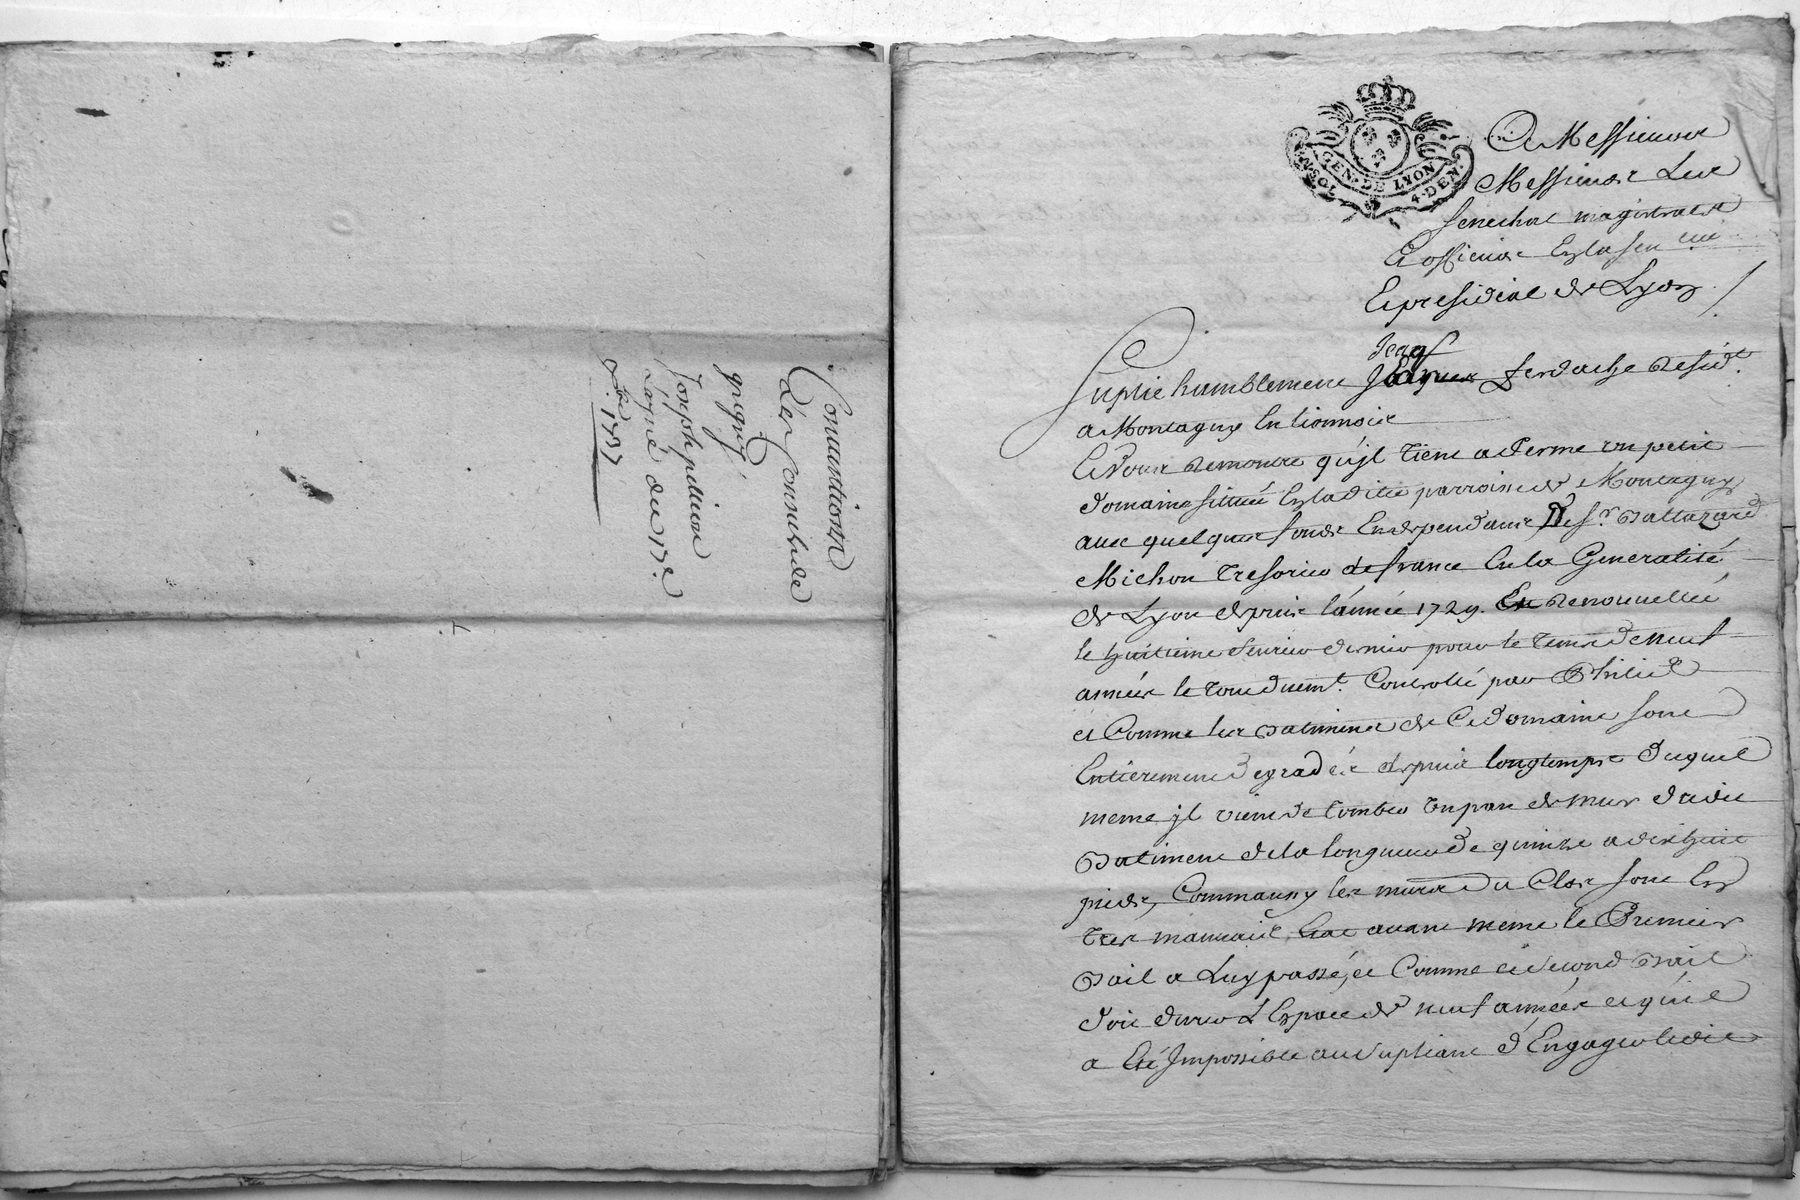 Conuantionn
personnelle
Joseph
du 17e.
GEN. DE LYON
4. DEN.
A Messieurs
Messieurs Les
senechal magistrats
Et officiers En la sen
Et presidial de Lyon /
Jean
Suplie humblement resid.t
a Montagny En lionnois
Et Vous Remontre qu'jl Tient a ferme un petit
domaine situé En ladite parroisse de Montagny
auec quelques fonds En dependants De Sr. Baltazard
Michon Tresorier de france En la Generalité
de Lyon depuis l'année 1729. Renouuellée
le huitieme feurier dernier pour le Tems de neuf
années le tout duem.t Controllé par
et Comme les Batiments de Ce domaine sont
Entierement degradés depuis longtemps duquel
meme jl vient de tomber un pan de mur dudit
Batiment de la longueur de quinze a dixhuit
pieds, Comm'aussy les murs Du Clos sont En
tres mauuais Etat auant meme le Premier
Bail a Luy passé, et Comme ce second Bail
doit durer L'Espace de neuf années et qu'il
a Eté Jmpossible au supliant d'Engager ledit